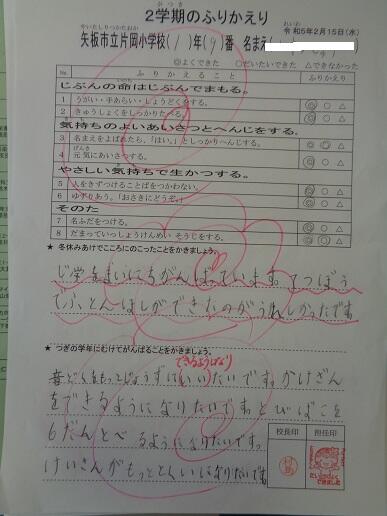 2学期のふりかえり
令和5年2月15日(水)
矢板市立片岡小学校(1)年(9)番 名まえ
◎よくできた ○だいたいできた △できなかった
№ ふりかえること ふりかえり
じぶんの命はじぶんでまもる。
1 うがい・手あらい・しょうどくをする。 ◎ ○ △
2 きゅうしょくをしっかりたべる。 ◎ ○ △
気持ちのよいあいさつとへんじをする。
3 名まえをよばれたら、「はい」としっかりへんじする。 ◎ ○ △
4 元気にあいさつする。 ◎ ○ △
やさしい気持ちで生かつする。
5 人をきずつけることばをつかわない。 ◎ ○ △
6 ゆずりあう。「おさきにどうぞ」 ◎ ○ △
そのた
7 名ふだをつける。 ◎ ○ △
8 だまっていっしょうけんめいそうじをする。 ◎ ○ △
★ 冬休みあけでこころにのこったことをかきましょう。
じ学をまいにちがんばっています。てつぼう
でふとんほしができたのがうれしかったです
★ つぎの学年にむけてがんばることをかきましょう。
できるようになり
音どくをもっとじょうずに(いい)たいです。かけざん
をできるようになりたいです。とびばこを
6だんとべるようになりたいです。
けいさんがもっととくいになりたいです
校長印 担任印